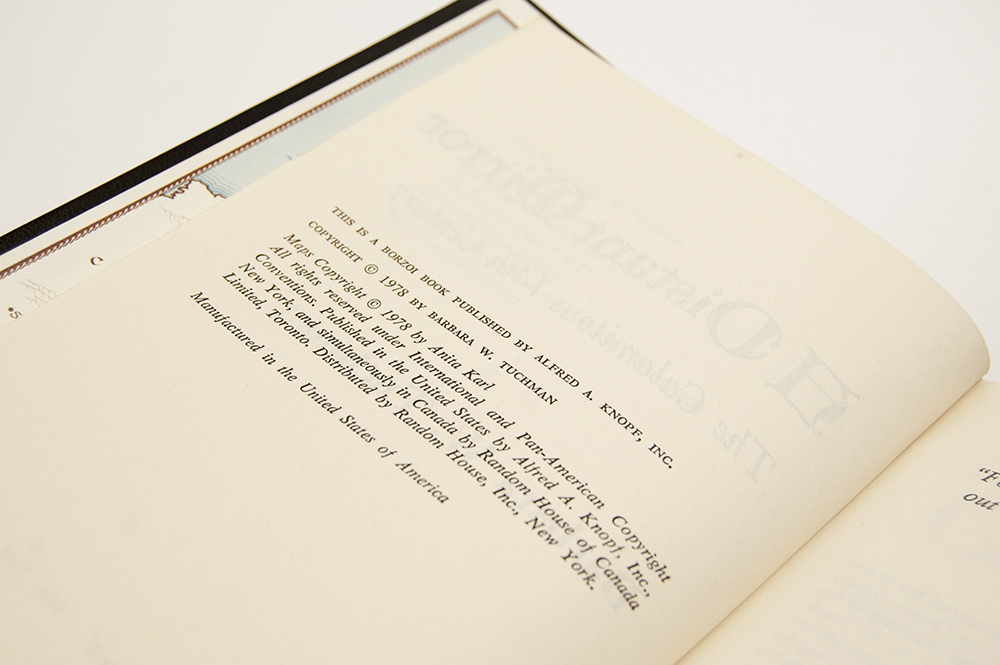 THIS IS A BORZOI BOOK PUBLISHED BY ALFRED A. KNOPF, INC.
COPYRIGHT © 1978 BY BARBARA W. TUCHMAN
Maps Copyright © 1978 by Anita Karl
All rights reserved under International and Pan-American Copyright
Conventions. Published in the United States by Alfred A. Knopf, Inc.,
New York, and simultaneously in Canada by Random House of Canada
Limited, Toronto. Distributed by Random House, Inc., New York.
Manufactured in the United States of America
A Distant Mirror
The Calamitous 14th Century
out